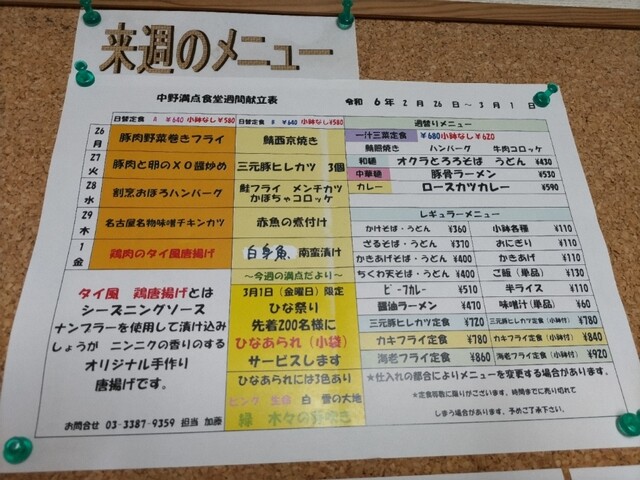 来週のメニュー
中野満点食堂週間献立表 令和 6年 2月 26日～ 3月 1日
日替定食 A ¥640 小鉢なし¥580
日替定食 B ¥640 小鉢なし¥580
26 月 豚肉野菜巻きフライ 鯖西京焼き
27 火 豚肉と卵のXO醤炒め 三元豚ヒレカツ 3個
28 水 割烹おぼろハンバーグ 鮭フライ メンチカツ
かぼちゃコロッケ
29 木 名古屋名物味噌チキンカツ 赤魚の煮付け
1 金 鶏肉のタイ風唐揚げ 白身魚 南蛮漬け
タイ風 鶏唐揚げとは
シーズニングソース
ナンプラーを使用して漬け込み
しょうが ニンニクの香りのする
オリジナル手作り
唐揚げです。
お問合せ 03-3387-9359 担当 加藤
～今週の満点だより～
3月1日（金曜日）限定
ひな祭り
先着200名様に
ひなあられ（小袋）
サービスします
ひなあられには3色あり
ピンク 生命 白 雪の大地
緑 木々の芽吹き
週替りメニュー
一汁三菜定食 ¥680小鉢なし¥620
鯖照焼き ハンバーグ 牛肉コロッケ
和麺 オクラとろろそば うどん ¥430
中華麺 豚骨ラーメン ¥530
カレー ロースカツカレー ¥590
レギュラーメニュー
かけそば・うどん ¥360 小鉢各種 ¥110
ざるそば・うどん ¥370 おにぎり ¥110
かきあげそば・うどん ¥400 かきあげ ¥110
ちくわ天そば・うどん ¥400 ご飯（単品） ¥130
ビーフカレー ¥510 半ライス ¥110
醤油ラーメン ¥470 味噌汁（単品） ¥60
三元豚ヒレカツ定食 ¥720 三元豚ヒレカツ定食（小鉢付） ¥780
カキフライ定食 ¥780 カキフライ定食（小鉢付） ¥840
海老フライ定食 ¥860 海老フライ定食（小鉢付） ¥920
★仕入れの都合によりメニューを変更する場合があります。
★定食等数に限りがございます。時間までに売り切れて
しまう場合があります。予めご了承下さい。